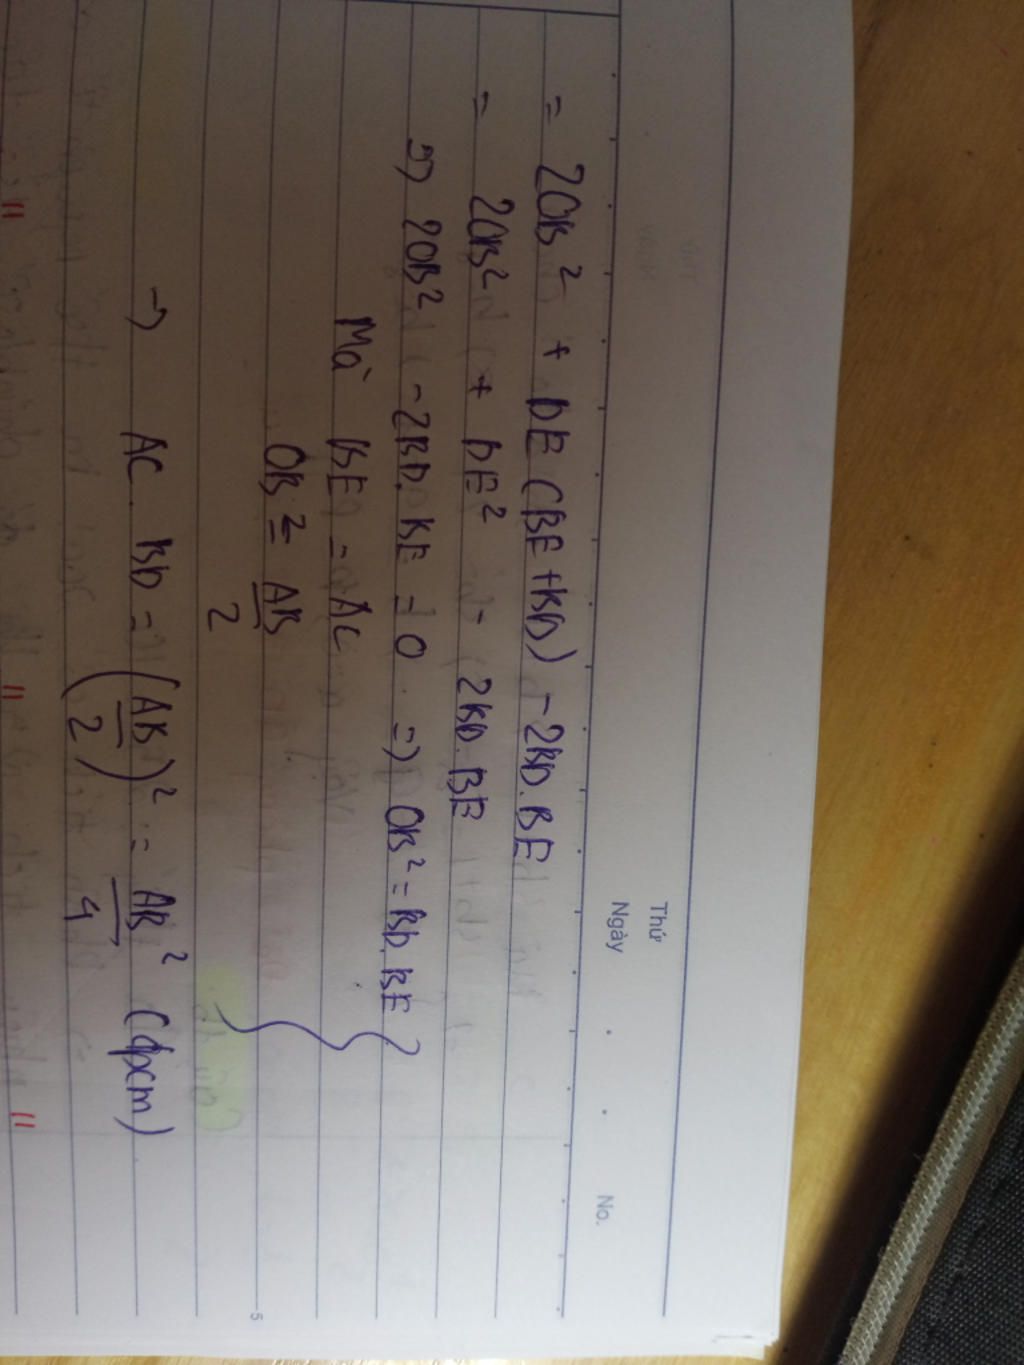 Thứ
Ngày . . No.
= 2OB² + DE (BE + BD) - 2BD. BE
= 2OB² + DE² - 2BD. BE
=> 2OB² - 2BD. BE = 0 => OB² = BD. BE
Mà BE = AC
OB = AB/2
→ AC. BD = (AB/2)² = AB²/4 (đpcm)
5